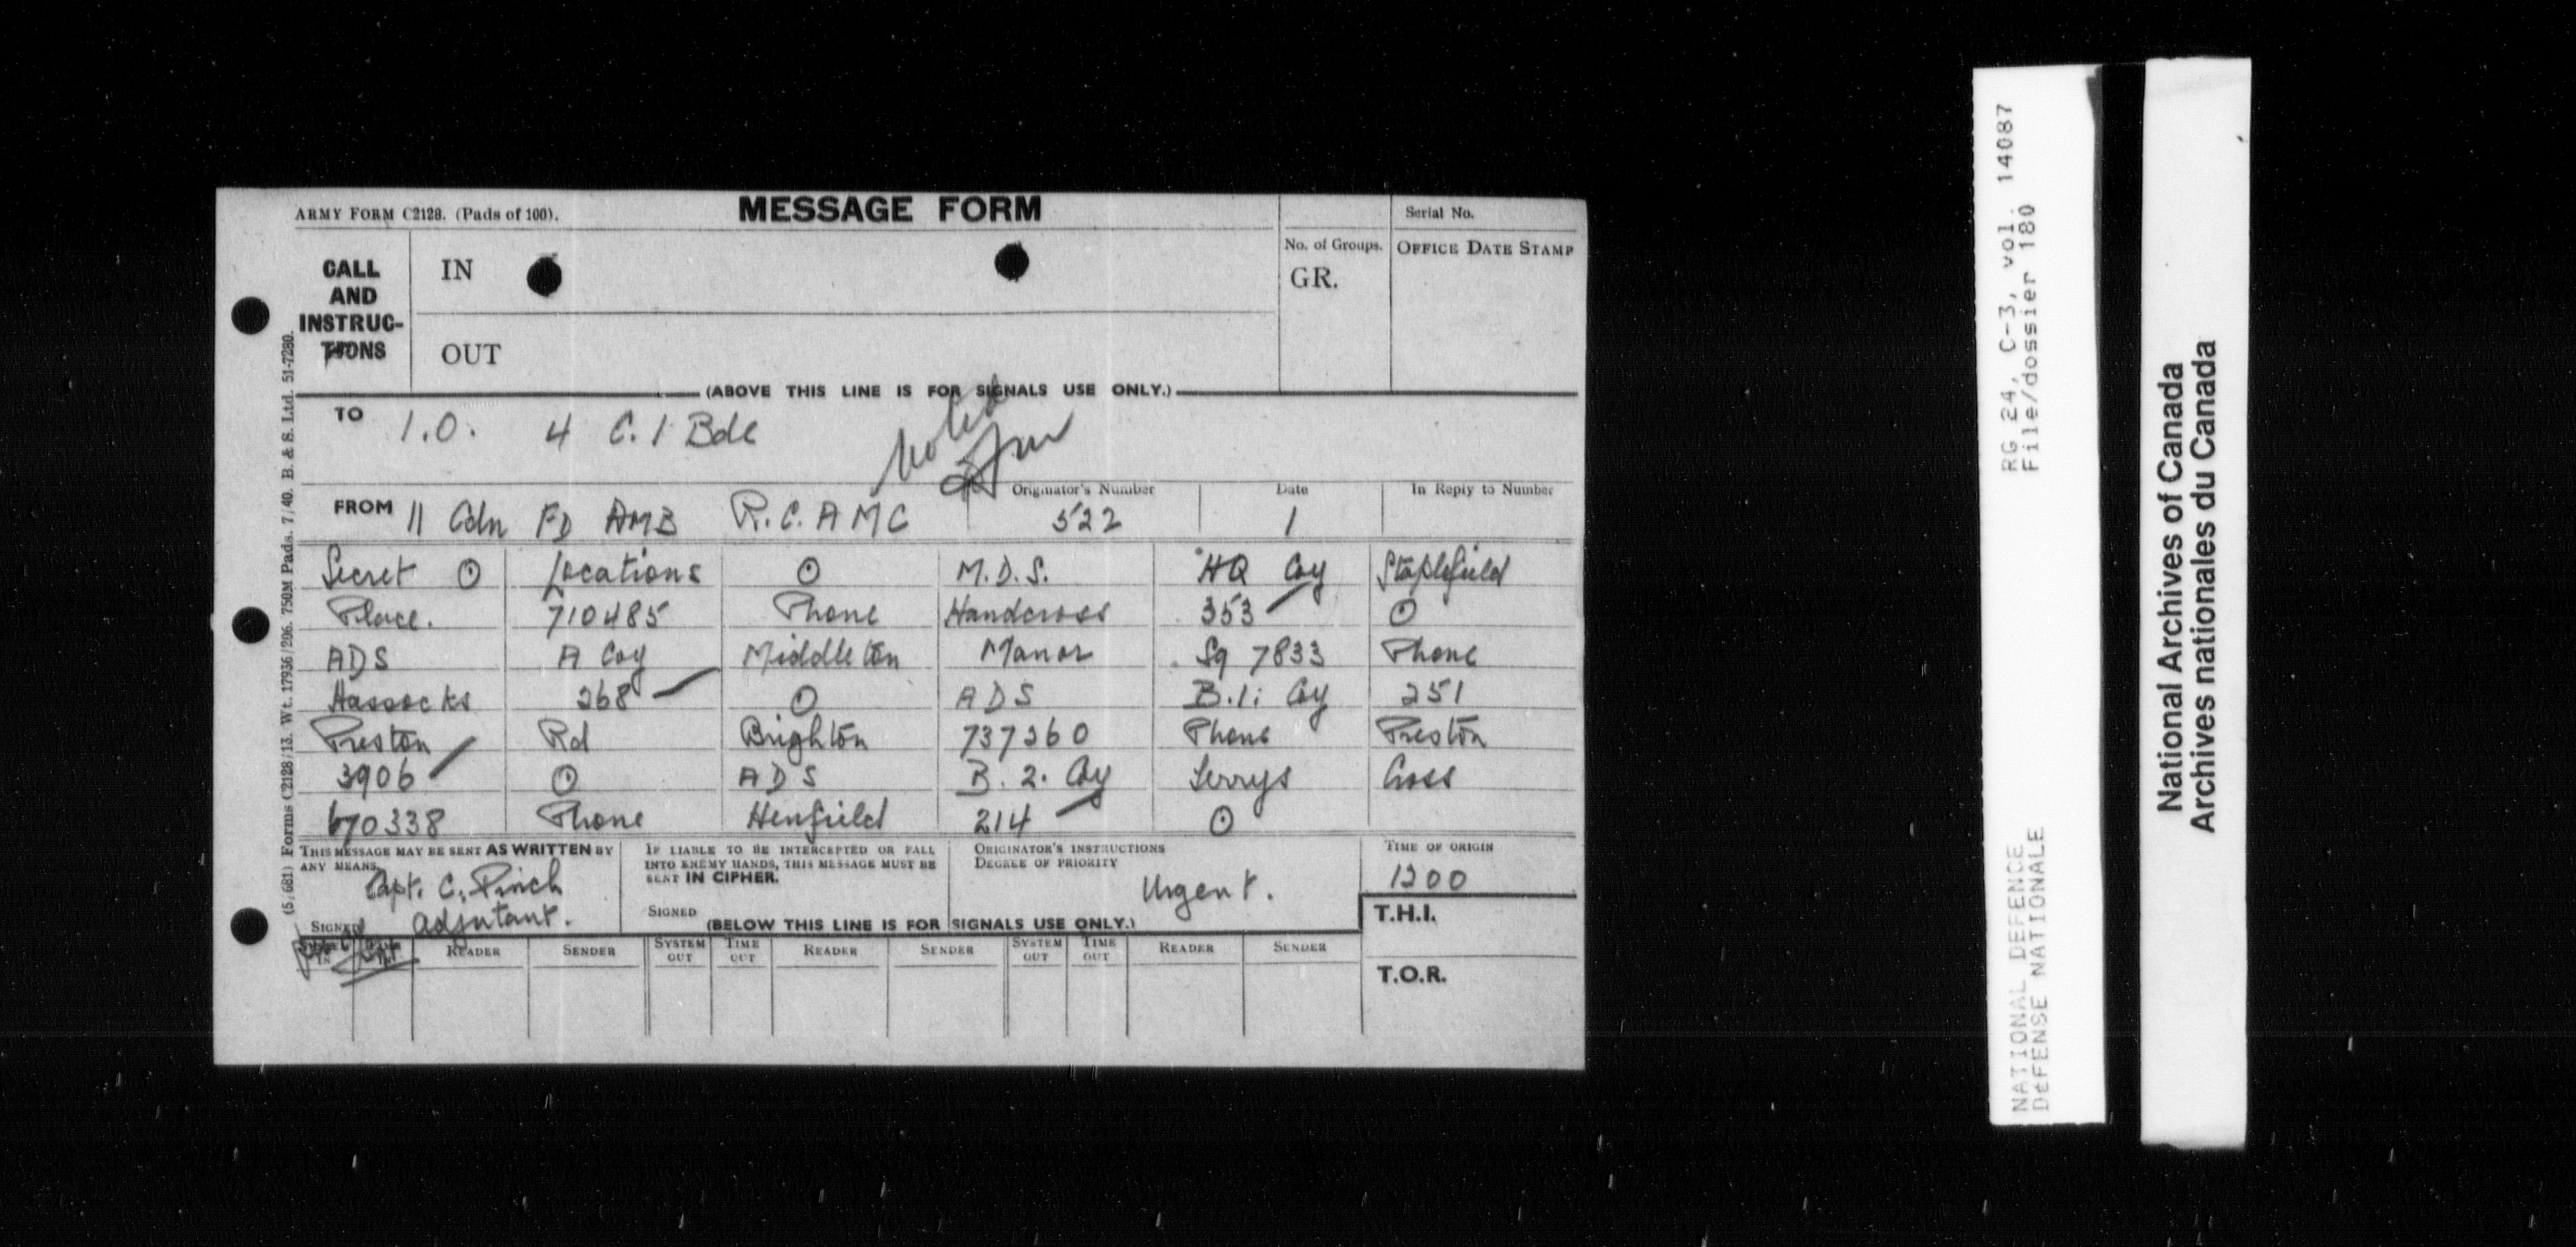 ARMY FORM C2128. (Pads of 100).
MESSAGE FORM
Serial No.
CALL AND INSTRUC-TIONS
IN
No. of Groups.
GR.
OFFICE DATE STAMP
OUT
(ABOVE THIS LINE IS FOR SIGNALS USE ONLY.)
TO I.O. 4 C.I Bde
Noted
FROM 11 Cdn FD AMB R.C.AMC
Originator's Number 522
Date 1
In Reply to Number
Secret ⊙ Locations ⊙ M.D.S. HQ Coy Staplefield
Place. 710485 Phone Handcross 353 ⊙
ADS A Coy Middleton Manor Sq 7833 Phone
Hassocks 268 ⊙ ADS B.1. Coy 251
Preston Rd Brighton 737260 Phone Preston
3906 ⊙ ADS B.2. Coy Terrys Cross
670338 Phone Henfield 214 ⊙
THIS MESSAGE MAY BE SENT AS WRITTEN BY ANY MEANS.
Capt. C. Pinch
SIGNED Adjutant.
IF LIABLE TO BE INTERCEPTED OR FALL INTO ENEMY HANDS, THIS MESSAGE MUST BE SENT IN CIPHER.
SIGNED
ORIGINATOR'S INSTRUCTIONS
DEGREE OF PRIORITY
Urgent.
TIME OF ORIGIN
1200
(BELOW THIS LINE IS FOR SIGNALS USE ONLY.)
T.H.I.
READER SENDER SYSTEM OUT TIME OUT READER SENDER SYSTEM OUT TIME OUT READER SENDER
T.O.R.
(5/681) Forms C2128/13. Wt. 17936/206. 750M Pads. 7/40. B. & S. Ltd. 51-7280.
RG 24, C-3, vol. 14087
File/dossier 180
NATIONAL DEFENCE
DéFENSE NATIONALE
National Archives of Canada
Archives nationales du Canada